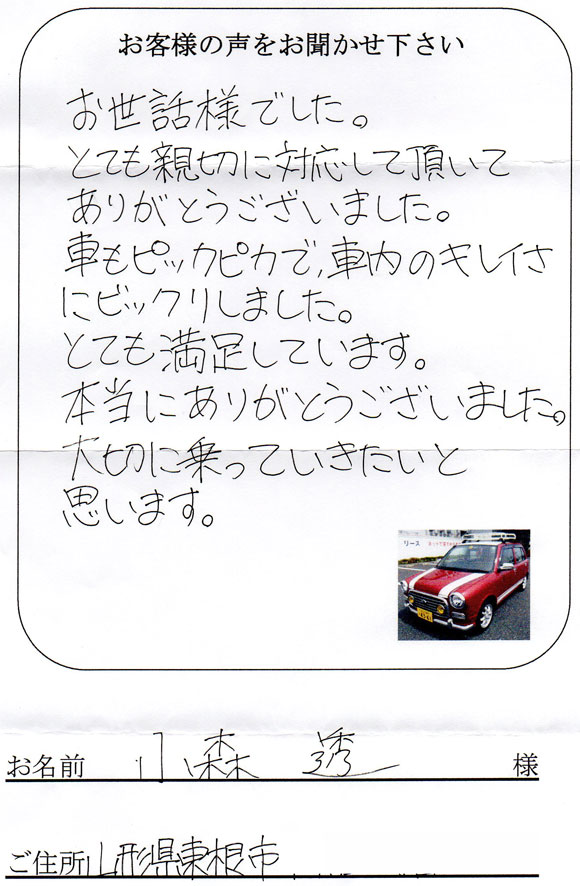 お客様の声をお聞かせ下さい
お世話様でした。
とても親切に対応して頂いて
ありがとうございました。
車もピッカピカで、車内のキレイさ
にビックリしました。
とても満足しています。
本当にありがとうございました。
大切に乗っていきたいと
思います。
リース
お名前 小森 透 様
ご住所 山形県東根市